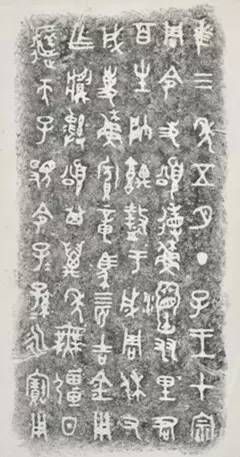 隹三年五月丁子王才宗
周令史頌省蘇姻友里君
百生帥堣盩于成周休又
成事蘇賓章馬四匹吉金用
乍䵼彝頌其萬年無疆日
天子覭令子孫永寶用